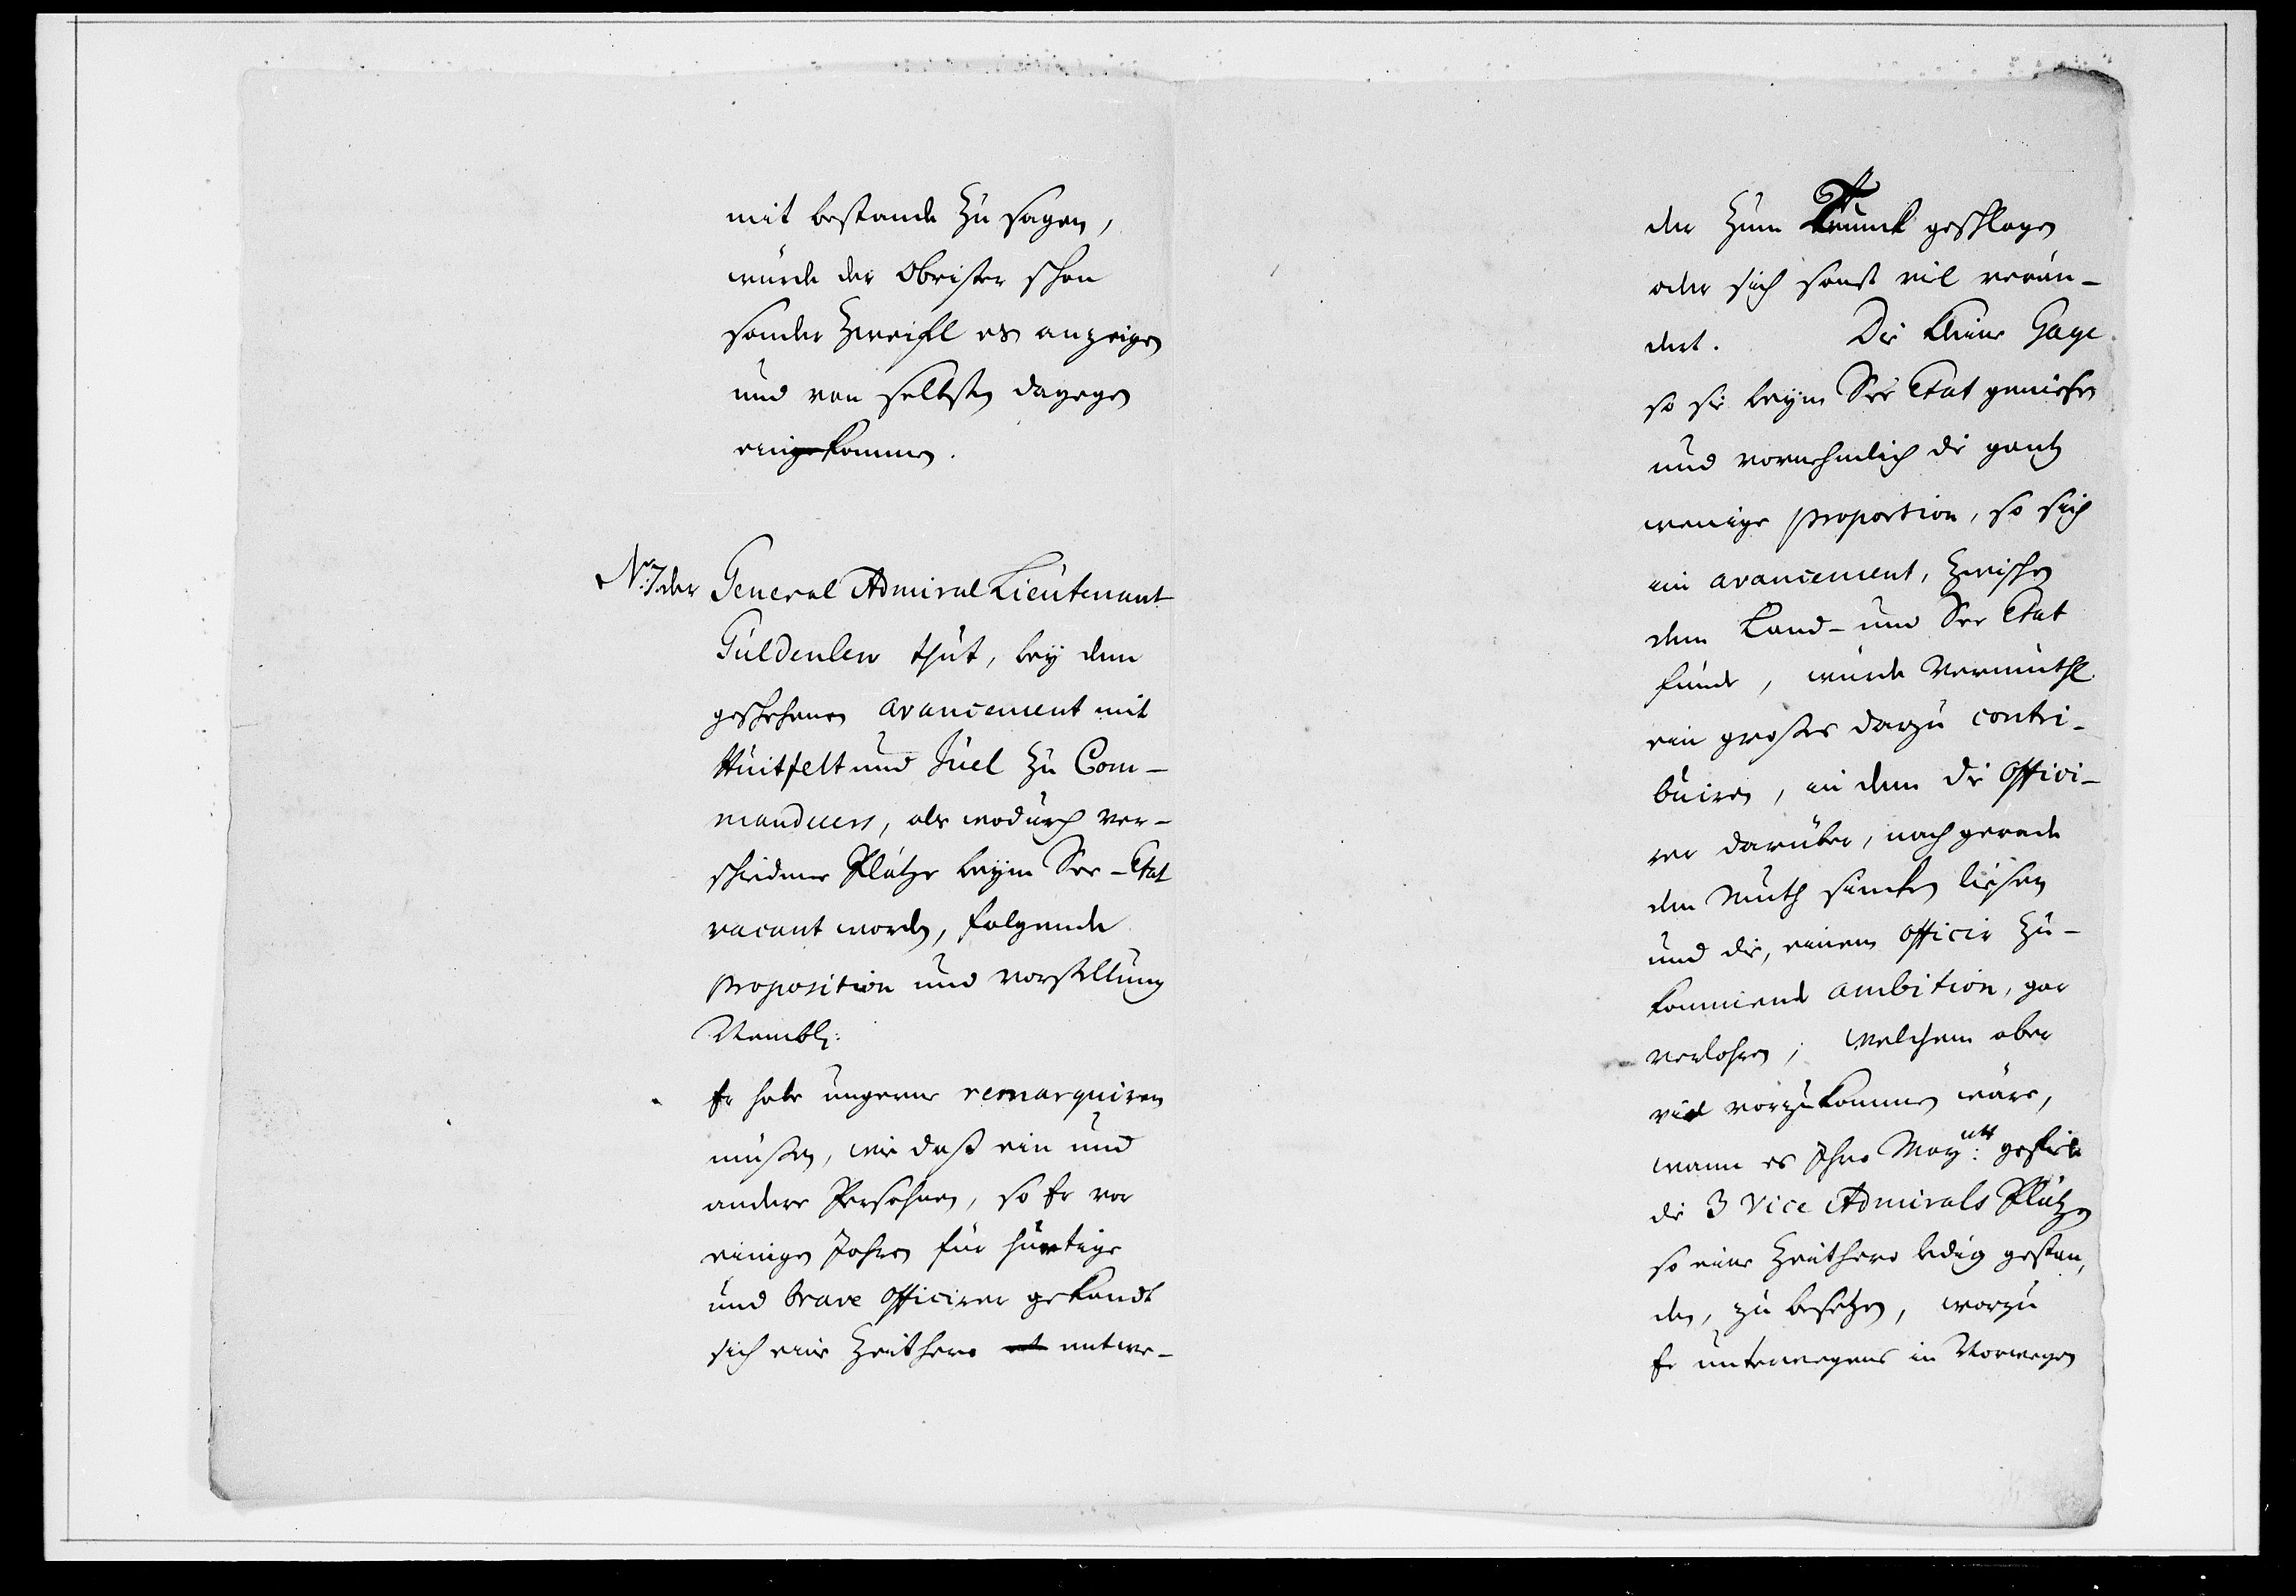 mit bestande zu sagen,
würde der Obrister schon
sonder Zweifel es anzeigen
und von selbsten dagegen
eingekommen.
No: 7. der General Admiral Lieutenant
Güldenlew thut, bey dem
geschehenen avancement mit
Huitfelt und Juel zu Com-
mandeurs, als wodurch ver-
schiedene Plätze beym See-Etat
vacant worden, folgende
proposition und vorstellung
Nembl:
Er habe ungerne remarquiren
müßen, wie daß ein und
andere Persohnen, so Er vor
einigen Jahren für hurtige
und brave Officirer gekandt
sich eine Zeithero entwe-
der zum Trunck geschlagen
oder sich sonst viel verän-
dert. Die kleine Gage
so sie beym See Etat genießen
und vornehmlich die gantz
wenige proportion, so sich
im avancement, zwischen
dem Land- und See Etat
fünde, würde Vermuthl.
ein großes darzu contri-
buiren, in dem die Offici-
rer darüber, nach gerade
den Muth sincken ließen
und die, einem Officir zu-
kommende ambition, gar
verlohren; Welchem aber
viel vorzukommen wäre,
wann es Ihro May:tt gefiele
die 3 Vice Admirals Plätze
so eine Zeithero ledig gestan-
den, zu besetzen, worzu
Er unterwegens in Norwegen